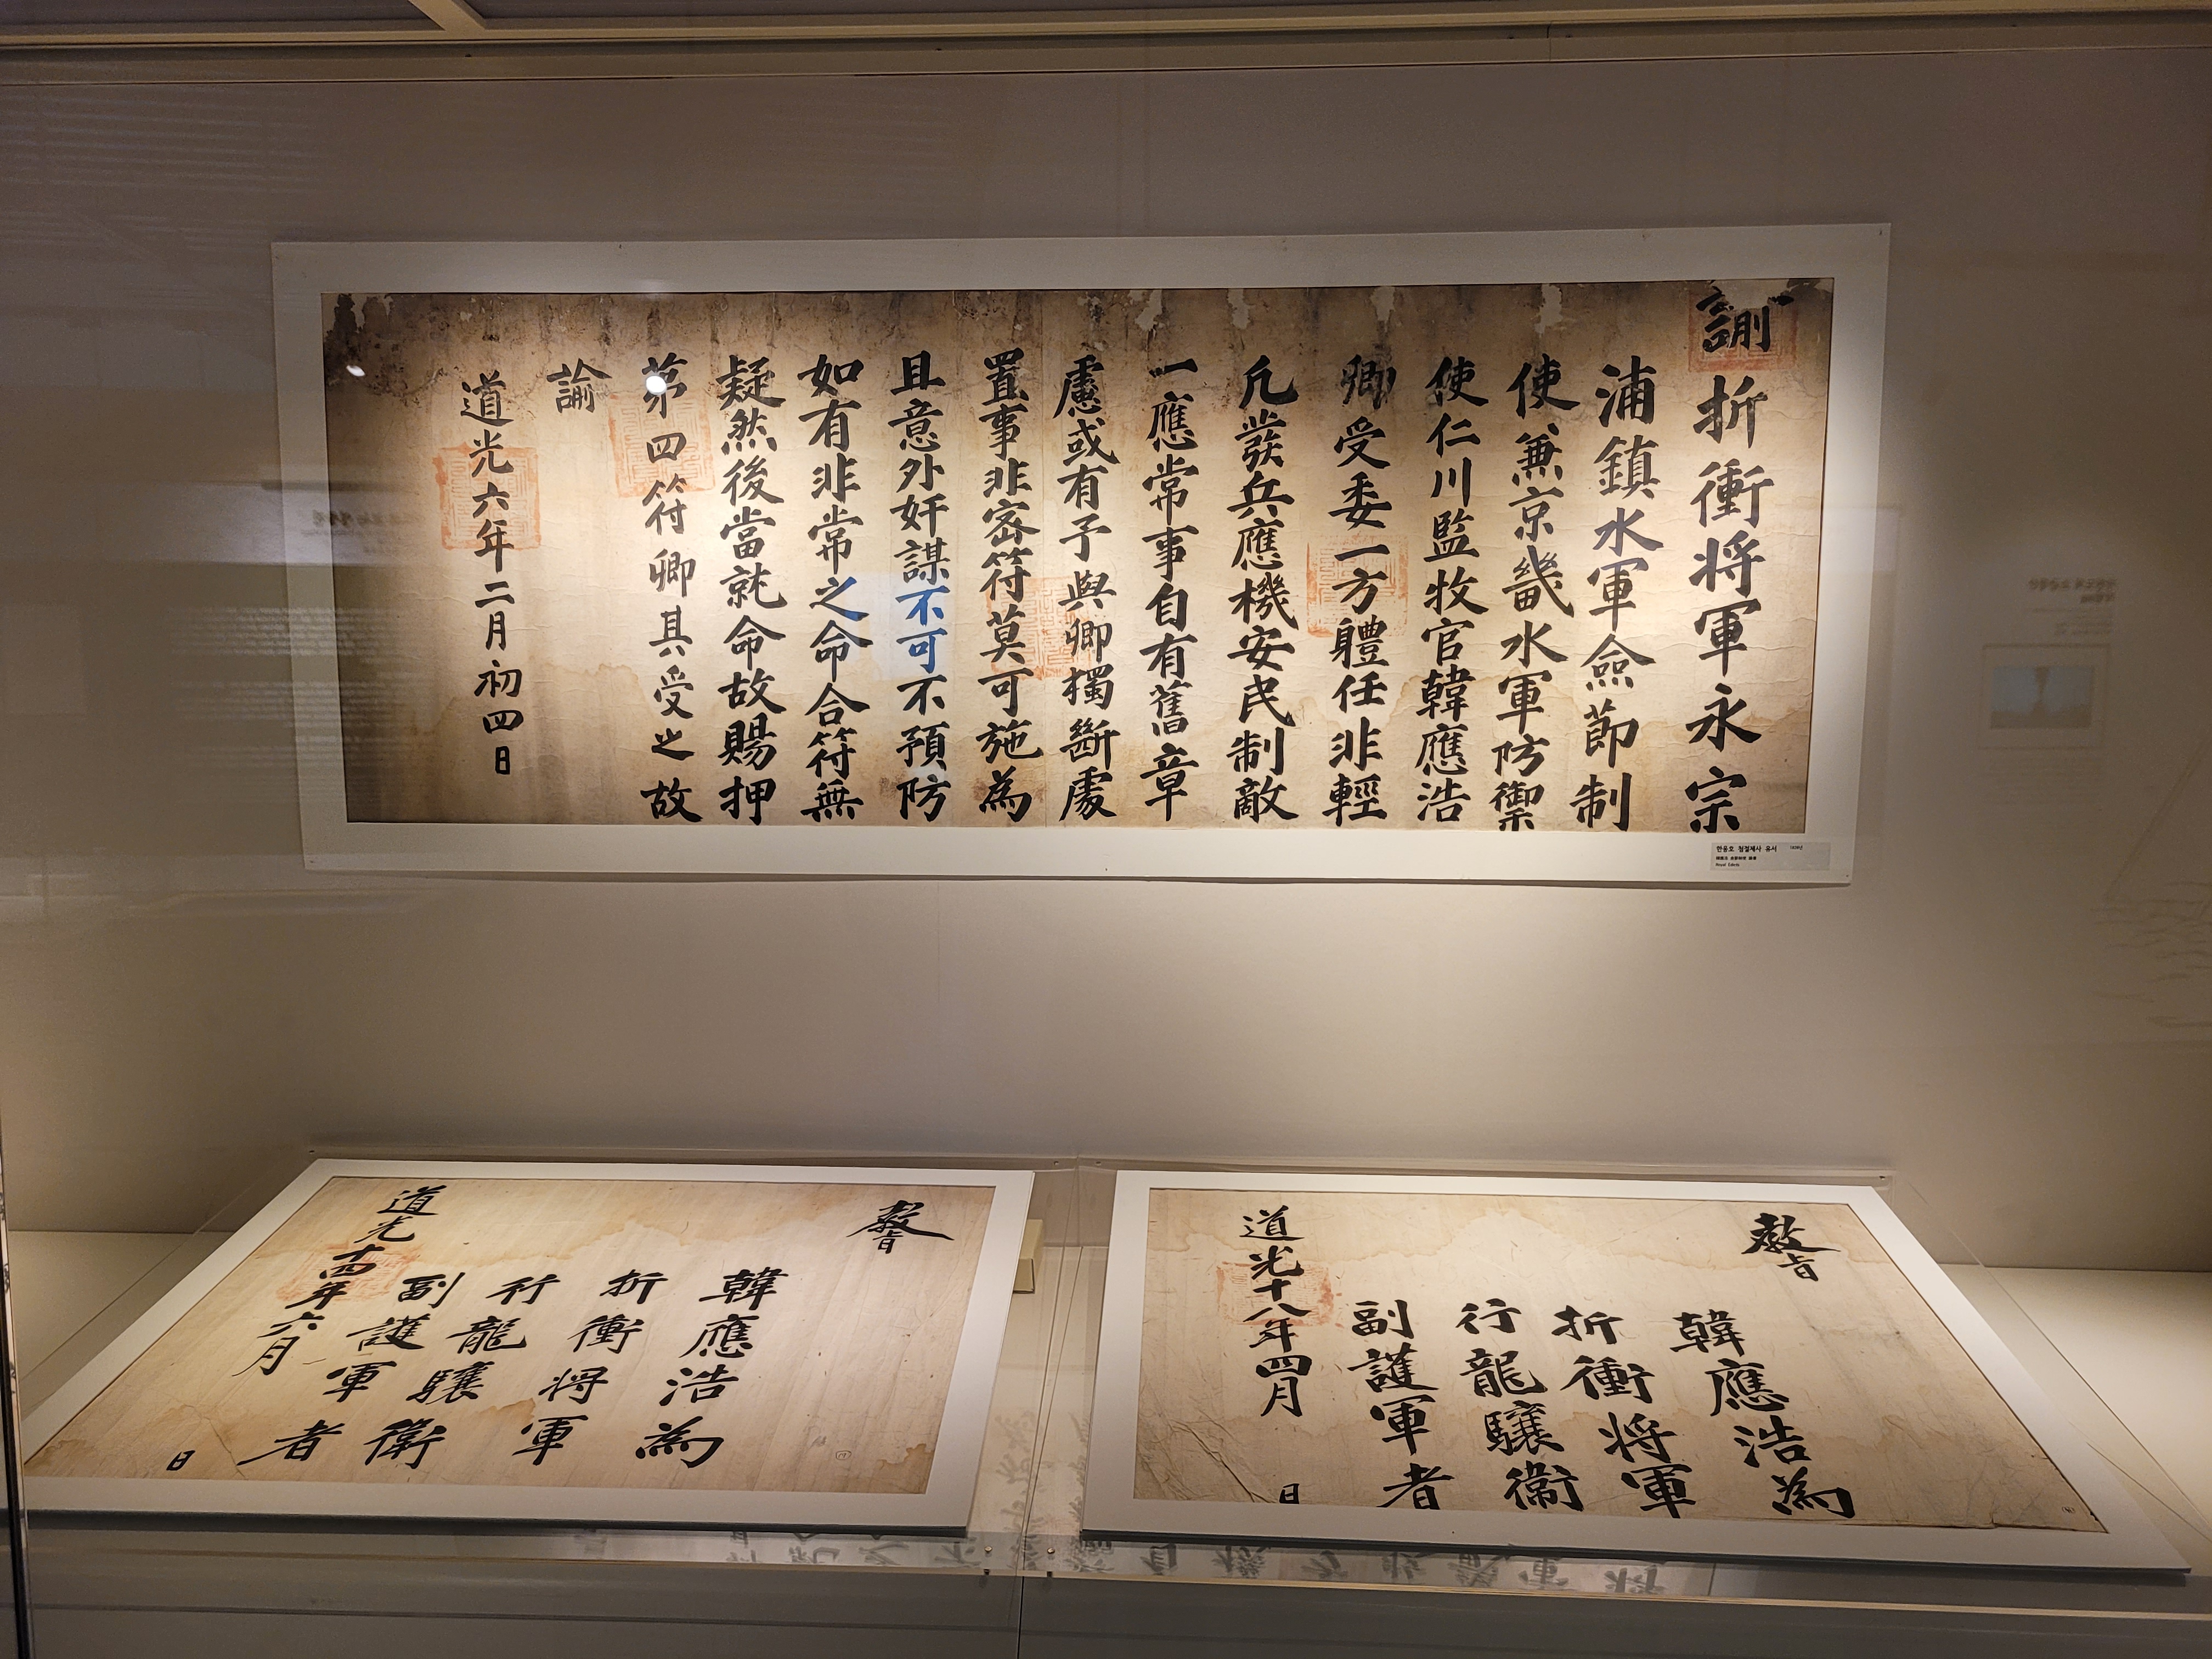 諭折衝將軍永宗
浦鎮水軍僉節制
使兼京畿水軍防禦
使仁川監牧官韓應浩
卿受委一方體任非輕
凡發兵應機安民制敵
一應常事自有舊章
慮或有予與卿獨斷處
置事非密符莫可施為
且意外奸謀不可不預防
如有非常之命合符無
疑然後當就命故賜押
第四符卿其受之故
諭
道光六年二月初四日
한응호 첨절제사 유서
Royal Edicts
敎旨
韓應浩為
折衝將軍
行龍驤衛
副護軍者
道光十八年四月 日
敎旨
韓應浩為
折衝將軍
行龍驤衛
副護軍者
道光十四年六月 日